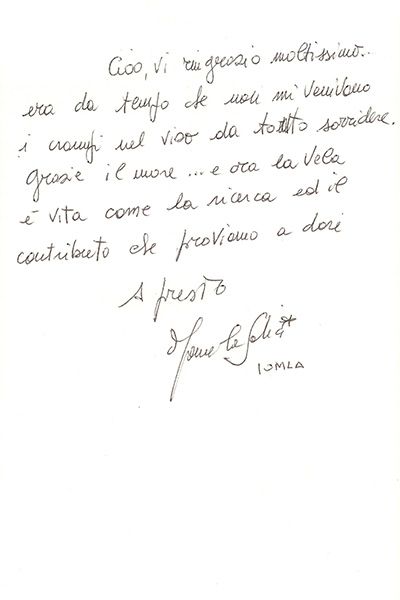 Ciao, vi ringrazio moltissimo..
era da tempo che non mi venivano
i crampi nel viso da tanto sorridere.
Grazie il mare ... e ora la vela
è vita come la ricerca ed il
contributo che proviamo a dare
A presto
IOMLA